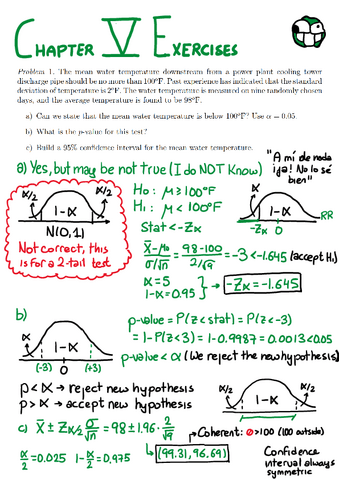 CHAPTER V EXERCISES
Problem 1. The mean water temperature downstream from a power plant cooling tower
discharge pipe should be no more than 100°F. Past experience has indicated that the standard
deviation of temperature is 2°F. The water temperature is measured on nine randomly chosen
days, and the average temperature is found to be 98°F.
a) Can we state that the mean water temperature is below 100°F? Use α = 0.05.
b) What is the p-value for this test?
c) Build a 95% confidence interval for the mean water temperature.
a) Yes, but may be not true (I do NOT Know)
"A mi de nada
¡ga! No lo sé
bien"
α/2 1-α α/2
N(0,1)
Not correct, this
is for a 2-tail test
H0: μ≥100°F
H1: μ<100°F
Stat <-Zα
α 1-α RR
-Zα 0
X̄-μ0/σ/√n = 98-100/2/√9 = -3 < -1.645 (accept H1)
α=5
1-α=0.95 } → -Zα = -1.645
b)
α 1-α
(-3) 0 (+3)
p-value = P(Z<stat) = P(Z<-3)
= 1-P(Z<3) = 1-0.9987 = 0.0013<0.05
p-value < α (We reject the new hypothesis)
p<α → reject new hypothesis
p>α → accept new hypothesis
α/2 1-α α/2
c) X̄ ± Zα/2 σ/√n = 98±1.96·2/√9
Coherent: >100 (100 outside)
α/2=0.025 1-α/2=0.975
(99.31, 96.69)
Confidence
interval always
symmetric